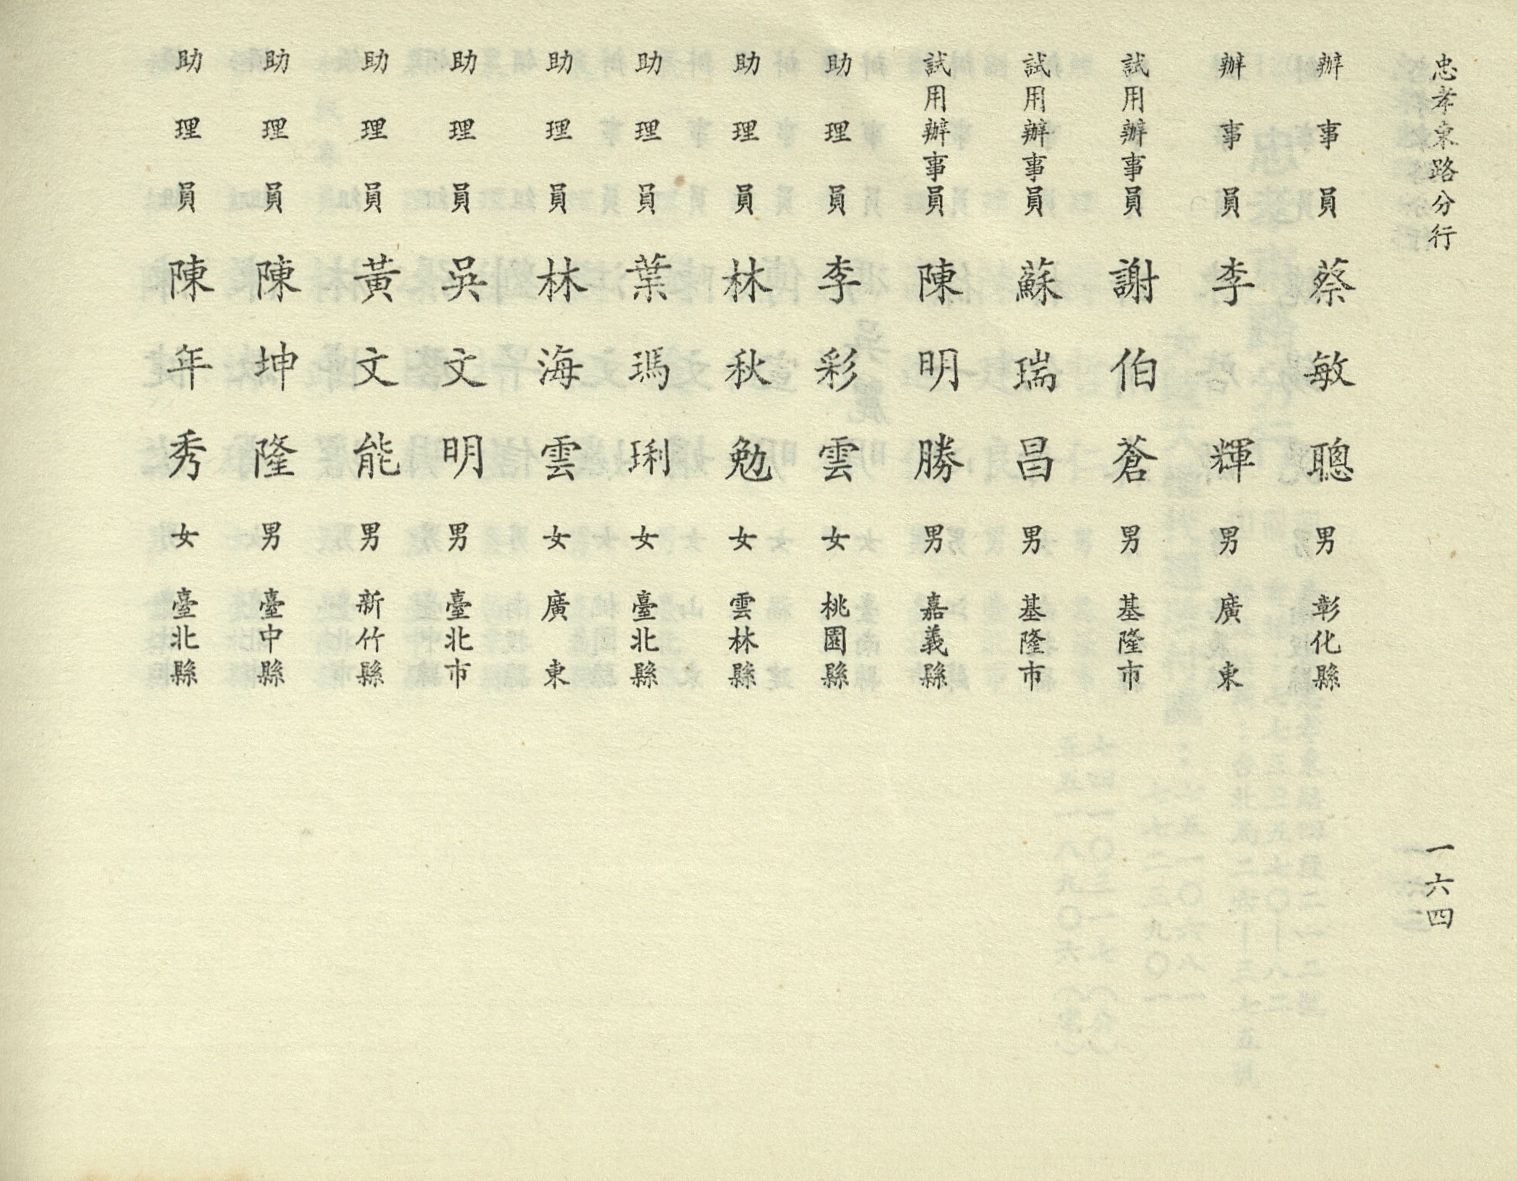 忠孝東路分行
一六四
辦事員 蔡敏聰 男 彰化縣
辦事員 李輝 男 廣東
試用辦事員 謝伯蒼 男 基隆市
試用辦事員 蘇瑞昌 男 基隆市
試用辦事員 陳明勝 男 嘉義縣
助理員 李彩雲 女 桃園縣
助理員 林秋勉 女 雲林縣
助理員 葉瑪琍 女 臺北縣
助理員 林海雲 女 廣東
助理員 吳文明 男 臺北市
助理員 黃文能 男 新竹縣
助理員 陳坤隆 男 臺中縣
助理員 陳年秀 女 臺北縣